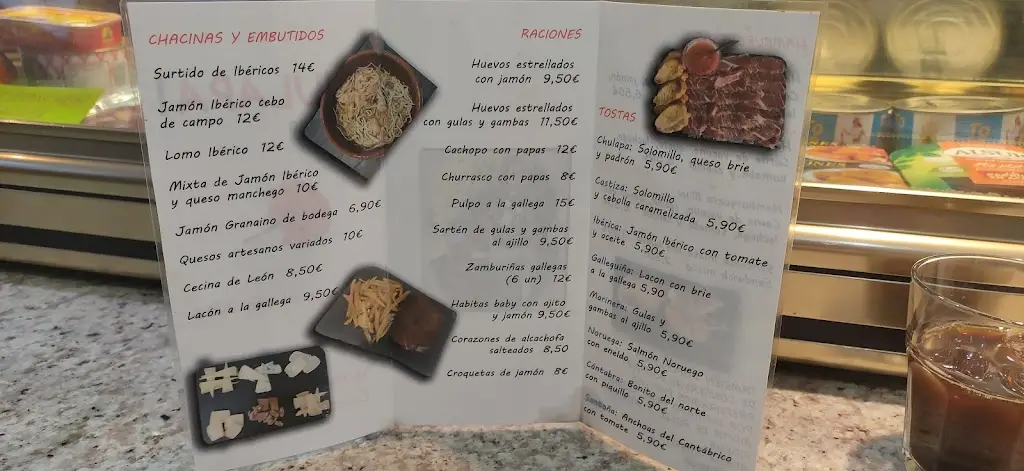 CHACINAS Y EMBUTIDOS
Surtido de Ibéricos 14€
Jamón Ibérico cebo
de campo 12€
Lomo Ibérico 12€
Mixta de Jamón Ibérico
y queso manchego 10€
Jamón Granaino de bodega 6,90€
Quesos artesanos variados 10€
Cecina de León 8,50€
Lacón a la gallega 9,50€
RACIONES
Huevos estrellados
con jamón 9,50€
Huevos estrellados
con gulas y gambas 11,50€
Cachopo con papas 12€
Churrasco con papas 8€
Pulpo a la gallega 15€
Sartén de gulas y gambas
al ajillo 9,50€
Zamburiñas gallegas
(6 un) 12€
Habitas baby con ajito
y jamón 9,50€
Corazones de alcachofa
salteados 8,50
Croquetas de jamón 8€
TOSTAS
Chulapa: Solomillo, queso brie
y padrón 5,90€
Castiza: Solomillo
y cebolla caramelizada 5,90€
Ibérica: Jamón Ibérico con tomate
y aceite 5,90€
Galleguiña: Lacon con brie
a la gallega 5,90
Marinera: Gulas y
gambas al ajillo 5,90€
Noruega: Salmón Noruego
con eneldo 5,90€
Cántabra: Bonito del norte
con piquillo 5,90€
Santoña: Anchoas del Cantábrico
con tomate 5,90€